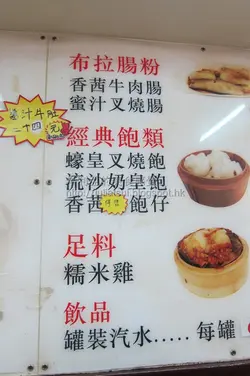 布拉腸粉
香茜牛肉腸
蜜汁叉燒腸
醬汁牛肚
二十四元
經典飽類
蠔皇叉燒飽
流沙奶皇飽
香茜 飽仔
足料
糯米雞
飲品
罐裝汽水..... 每罐